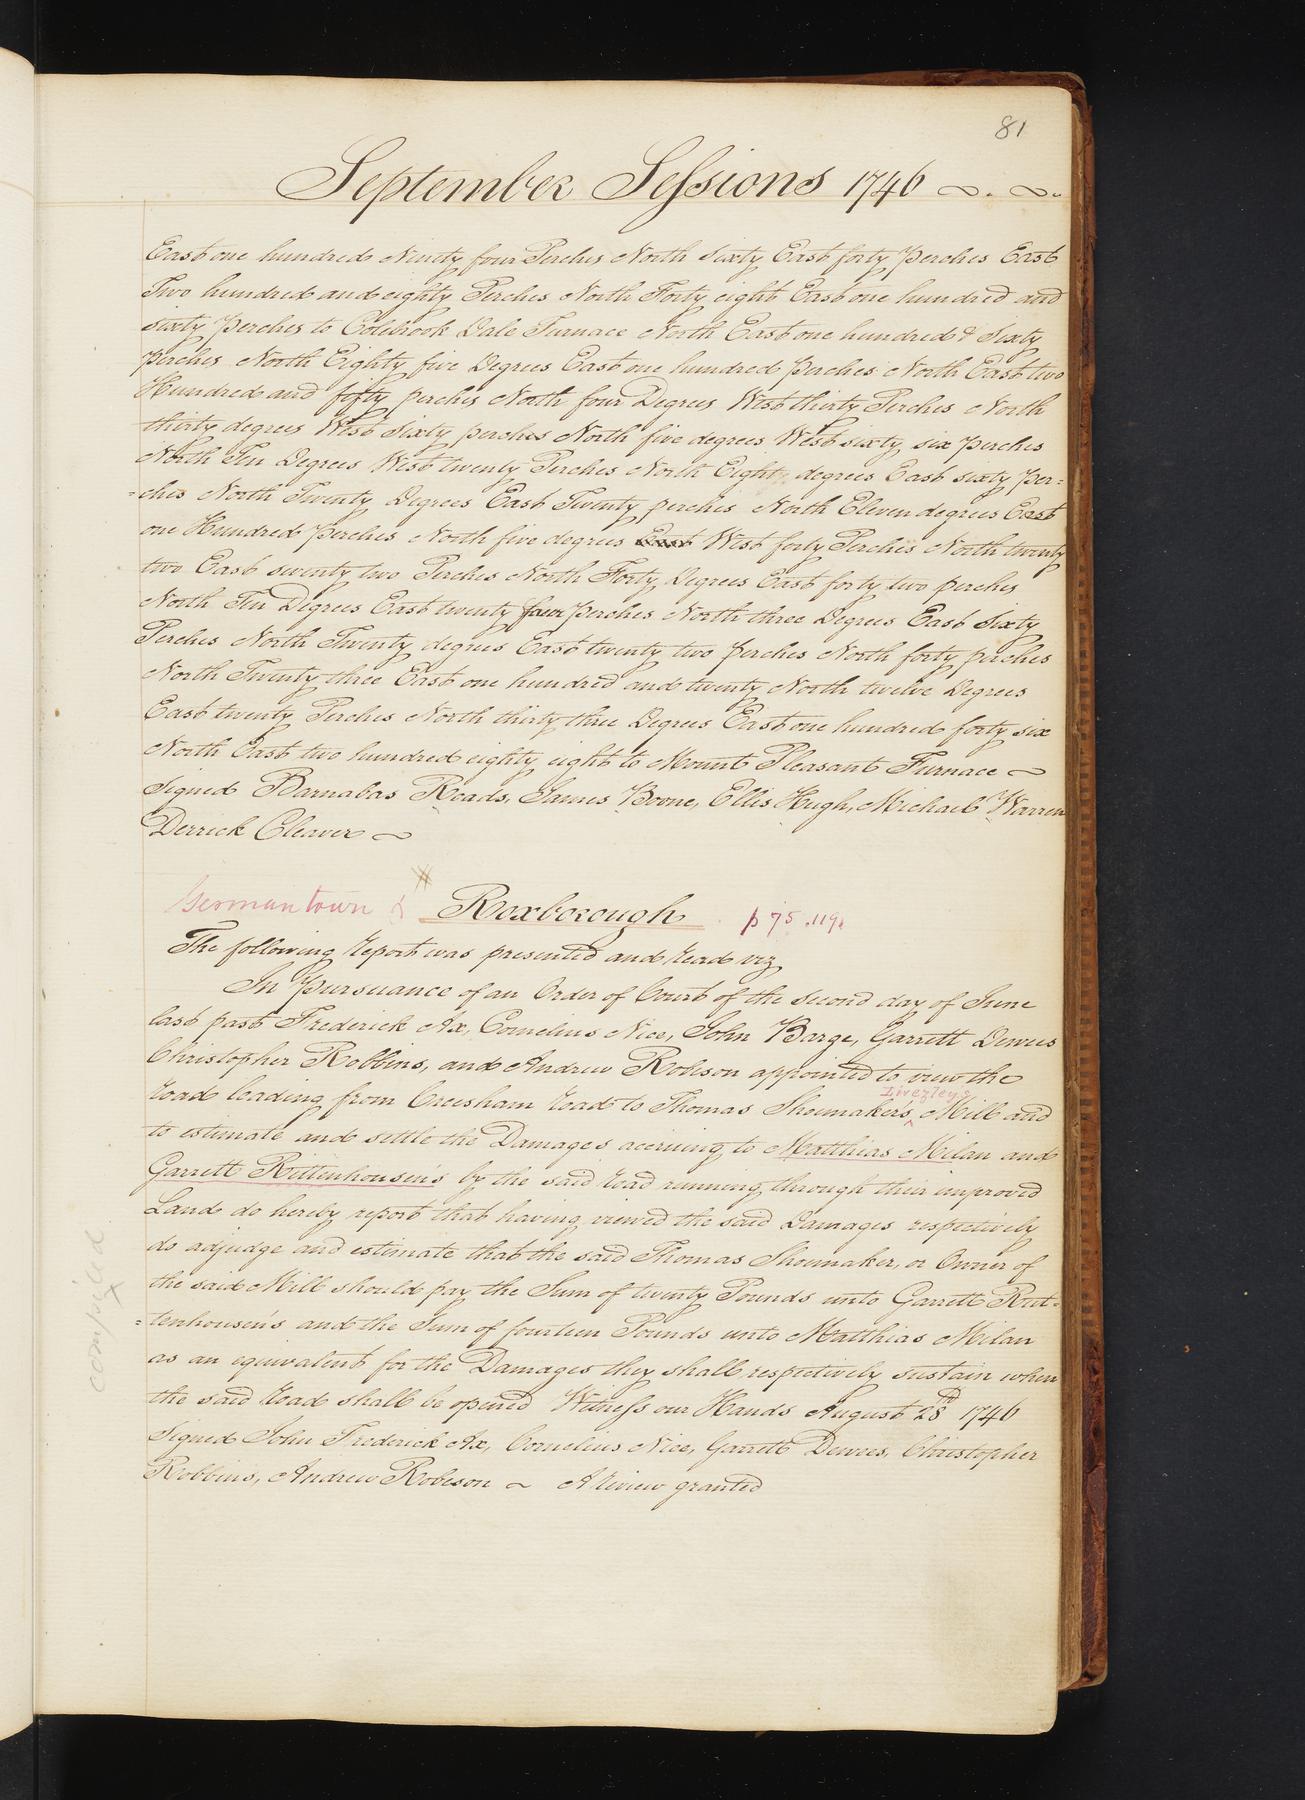 81
September Sessions 1746
East one hundred Ninety four Perches North Sixty East forty Perches East
Two hundred and eighty Perches North Forty eight East one hundred and
sixty Perches to Colebrook Dale Furnace North East one hundred & Sixty
Perches North Eighty five Degrees East one hundred Perches North East two
Hundred and fifty perches North four Degrees West thirty Perches North
thirty degrees West Sixty perches North five degrees West sixty six Perches
North Ten Degrees West twenty Perches North Eight degrees East sixty Per=
=ches North Twenty Degrees East Twenty perches North Eleven degrees East
one Hundred Perches North five degrees East West forty Perches North twenty
two East seventy two Perches North Forty Degrees East forty two perches
North Ten Degrees East twenty four perches North three Degrees East Sixty
Perches North Twenty degrees East twenty two perches North forty perches
North Twenty three East one hundred and twenty North twelve Degrees
East twenty Perches North thirty three Degrees East one hundred forty six
North East two hundred eighty eight to Mount Pleasant Furnace
Signed Barnabas Roads, James Boone, Ellis Hugh, Michael Warren
Derrick Cleaver
Germantown & Roxborough p 75. 119.
The following report was presented and read viz
In Pursuance of an Order of Court of the second day of June
last past Frederick Ax, Cornelius Nice, John Barge, Garrett Dewees
Christopher Robbins, and Andrew Robeson appointed to view the
Livezley's
road leading from Creesham road to Thomas Shoemakers ^ Mill and
to estimate and settle the Damages accruing to Matthias Milan and
Garrett Rittenhousen's by the said road running through their improved
Land do hereby report that having viewed the said Damages respectively
do adjudge and estimate that the said Thomas Shoemaker, or Owner of
the said Mill should pay the Sum of twenty Pounds unto Garrett Rut=
=tenhousen's and the Sum of fourteen Pounds unto Matthias Milan
as an equivalent for the Damages they shall respectively sustain when
the said road shall be opened Witness our Hands August 28th 1746
Signed John Frederick Ax, Cornelius Nice, Garrett Dewees, Christopher
Robbins, Andrew Robeson A review granted